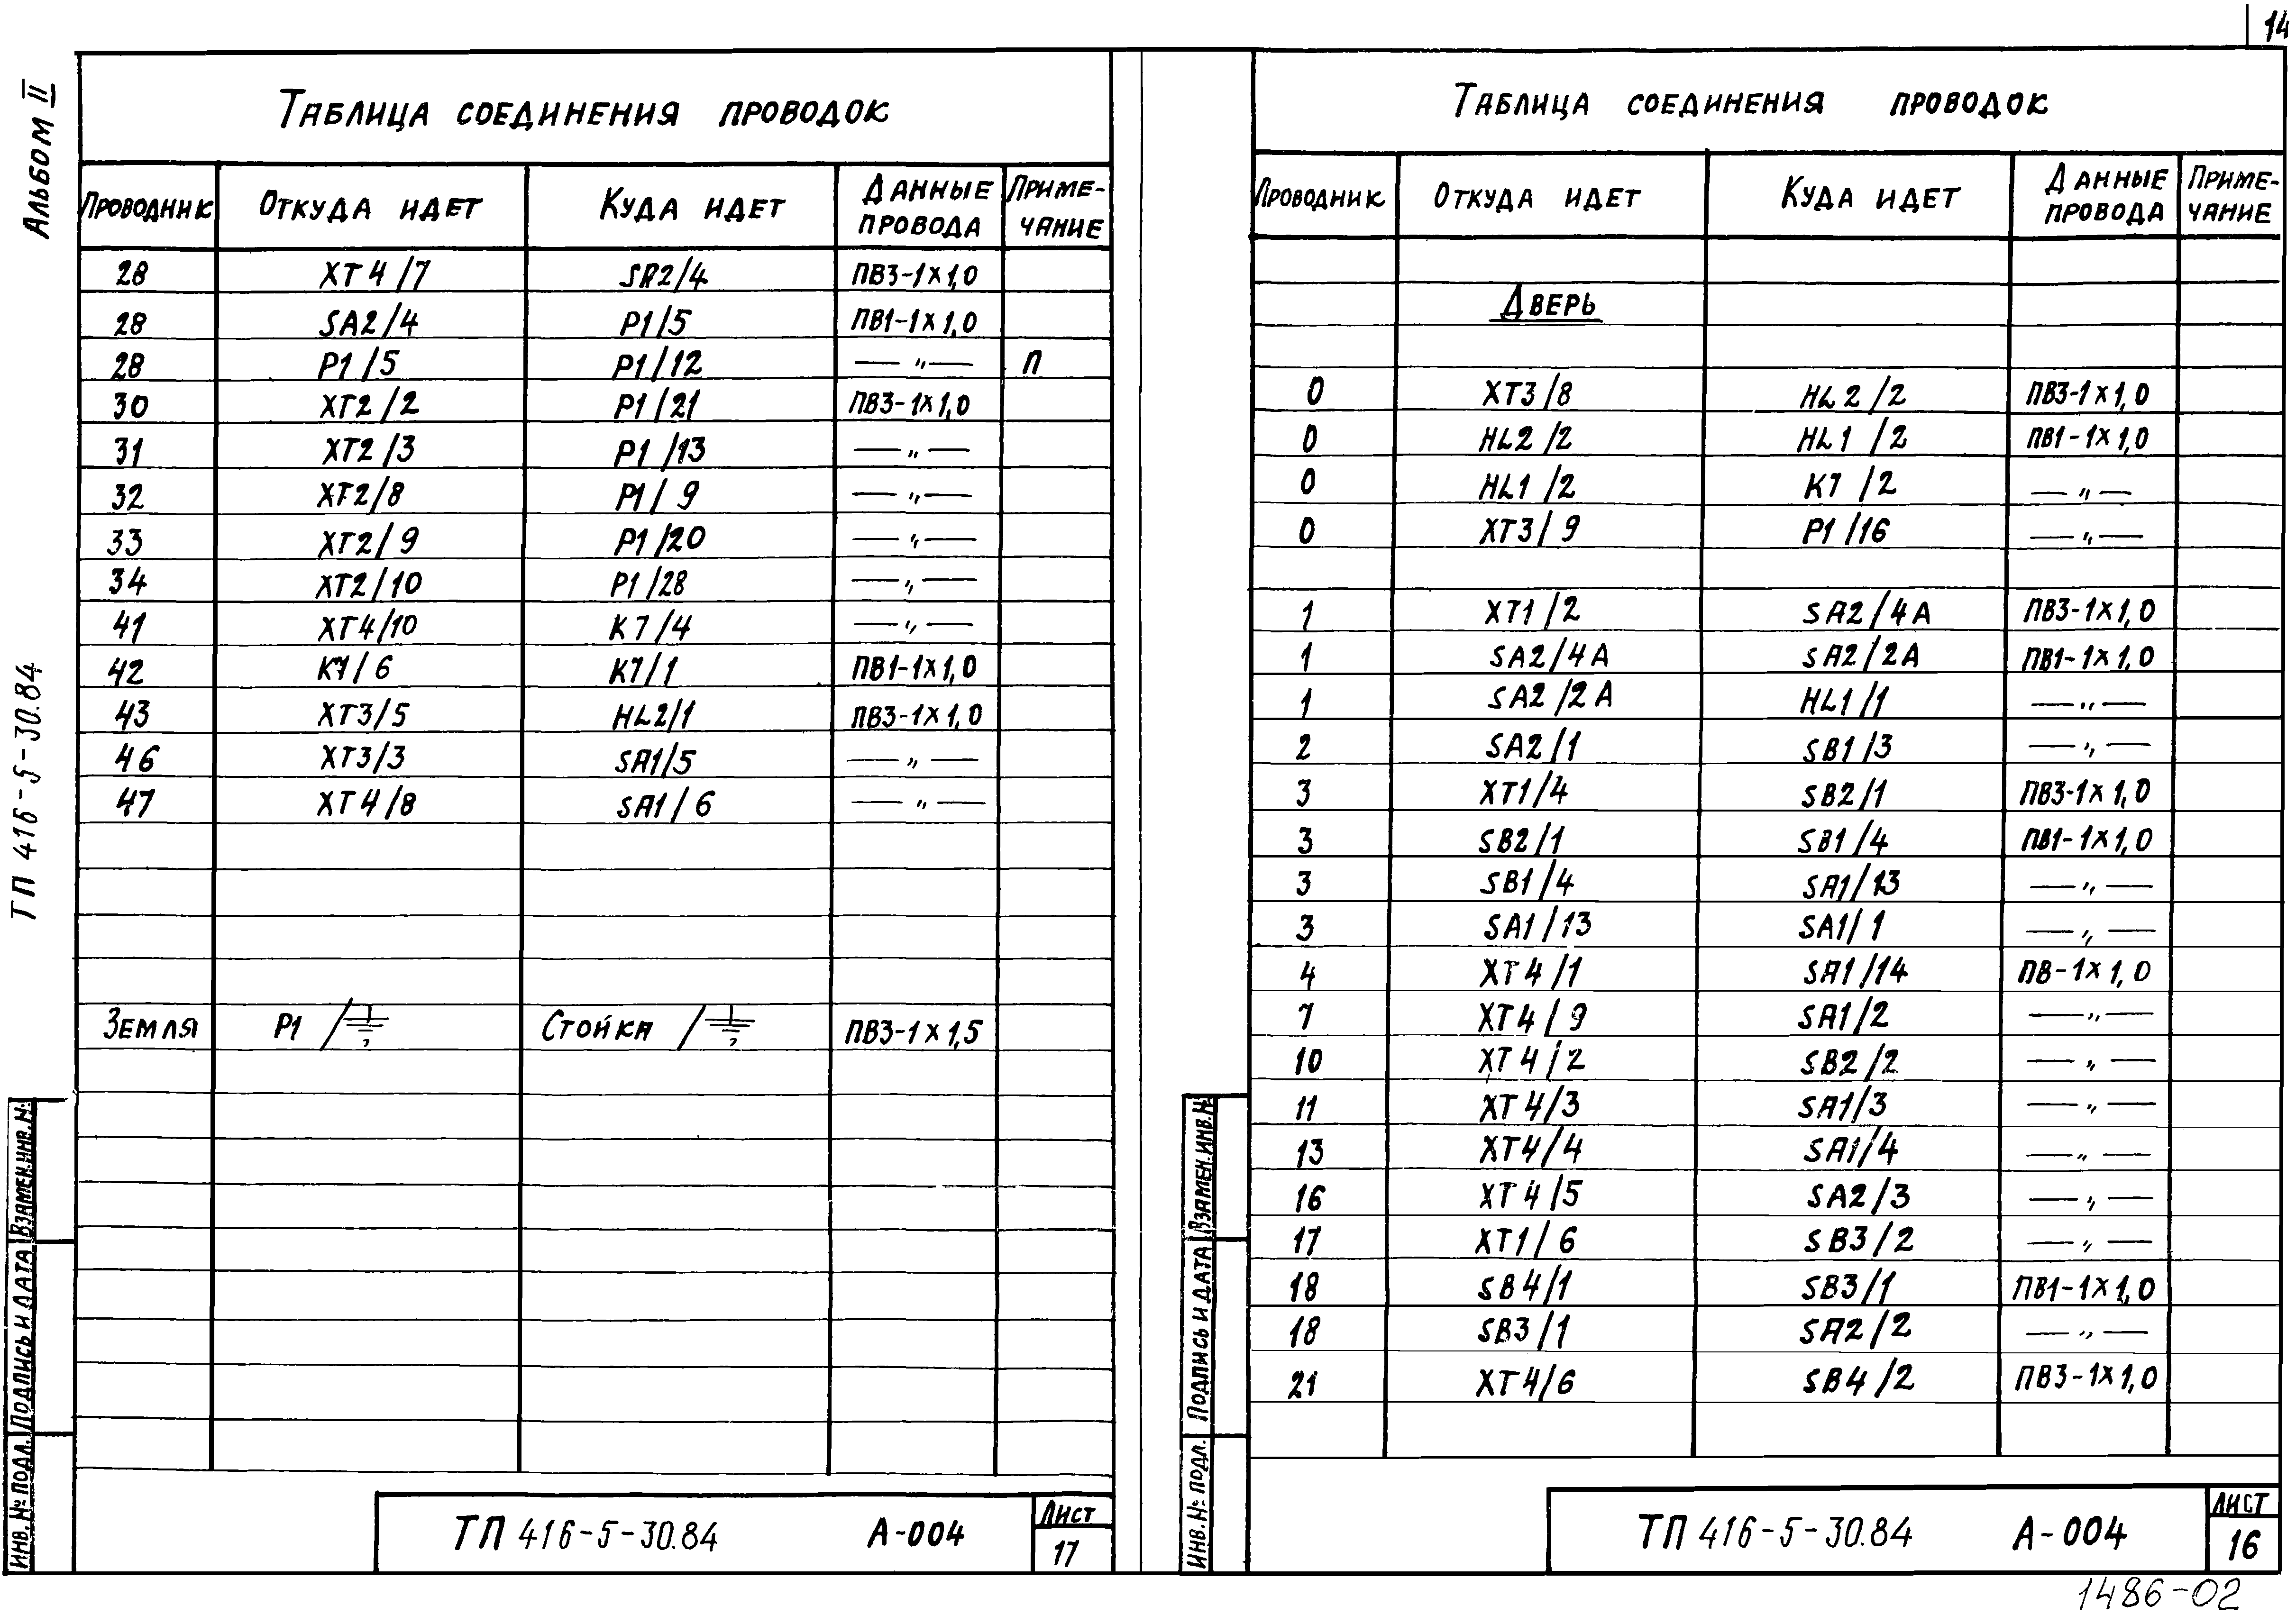 14
Альбом II
ТП 416-5-30.84
Таблица соединения проводок
Проводник Откуда идет Куда идет Данные провода Примечание
28 XT4/7 SA2/4 ПВ3-1×1,0
28 SA2/4 P1/5 ПВ1-1×1,0
28 P1/5 P1/12 —„— П
30 XT2/2 P1/21 ПВ3-1×1,0
31 XT2/3 P1/13 —„—
32 XT2/8 P1/9 —„—
33 XT2/9 P1/20 —„—
34 XT2/10 P1/28 —„—
41 XT4/10 K7/4 —„—
42 K7/6 K7/1 ПВ1-1×1,0
43 XT3/5 HL2/1 ПВ3-1×1,0
46 XT3/3 SA1/5 —„—
47 XT4/8 SA1/6 —„—
Земля P1/⏚ Стойка/⏚ ПВ3-1×1,5
Взамен.инв.№
Подпись и дата
Инв.№ подл.
ТП 416-5-30.84 А-004 Лист 17
Таблица соединения проводок
Проводник Откуда идет Куда идет Данные провода Примечание
Дверь
0 XT3/8 HL2/2 ПВ3-1×1,0
0 HL2/2 HL1/2 ПВ1-1×1,0
0 HL1/2 K7/2 —„—
0 XT3/9 P1/16 —„—
1 XT1/2 SA2/4A ПВ3-1×1,0
1 SA2/4A SA2/2A ПВ1-1×1,0
1 SA2/2A HL1/1 —„—
2 SA2/1 SB1/3 —„—
3 XT1/4 SB2/1 ПВ3-1×1,0
3 SB2/1 SB1/4 ПВ1-1×1,0
3 SB1/4 SA1/13 —„—
3 SA1/13 SA1/1 —„—
4 XT4/1 SA1/14 ПВ-1×1,0
7 XT4/9 SA1/2 —„—
10 XT4/2 SB2/2 —„—
11 XT4/3 SA1/3 —„—
13 XT4/4 SA1/4 —„—
16 XT4/5 SA2/3 —„—
17 XT1/6 SB3/2 —„—
18 SB4/1 SB3/1 ПВ1-1×1,0
18 SB3/1 SA2/2 —„—
21 XT4/6 SB4/2 ПВ3-1×1,0
Взамен.инв.№
Подпись и дата
Инв.№ подл.
ТП 416-5-30.84 А-004 Лист 16
1486-02